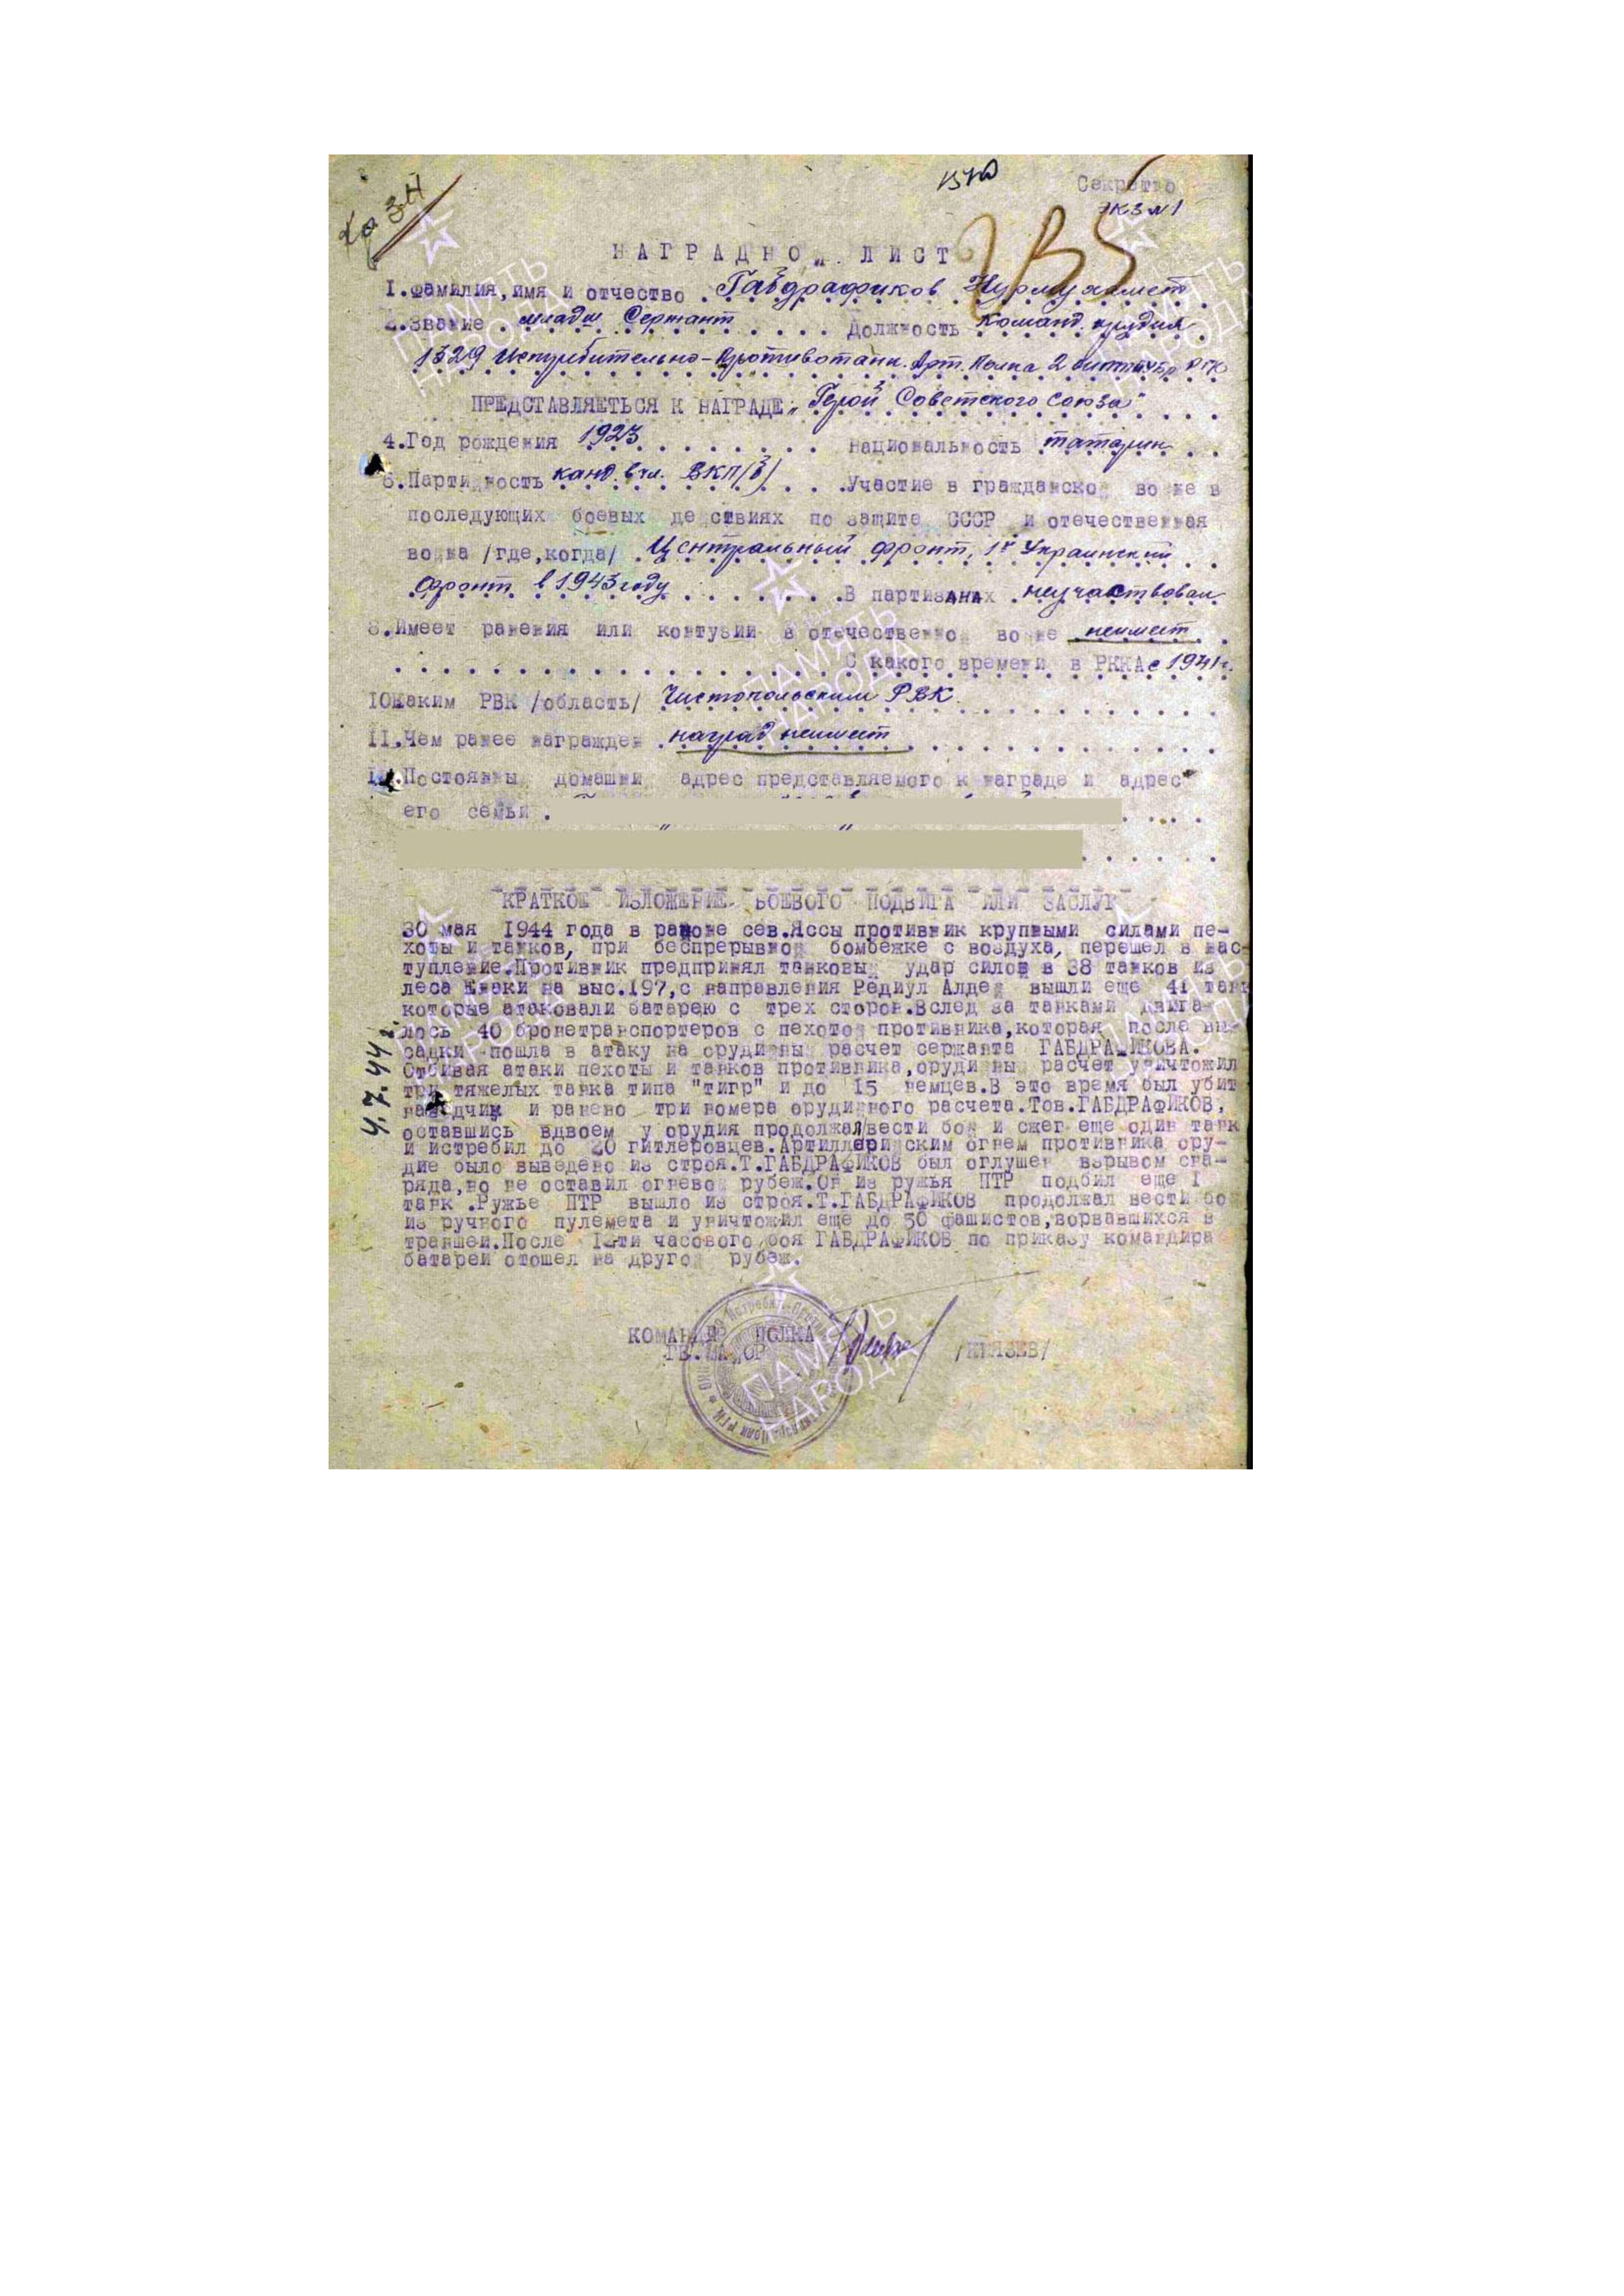 Секретно
экз №1
НАГРАДНО ЛИСТ
1.Фамилия,имя и отчество . Габдрафиков Нурмухамет
2.Звание . младш Сержант . . . . Должность Команд. орудия
1329 Истребительно-Противотанк. Арт. Полка 2 РГК
ПРЕДСТАВЛЯЕТЬСЯ К НАГРАДЕ „Герой Советского Союза"
4.Год рождения 1923 . . . . . . . национальность татарин
6.Партийность канд. в чл. ВКП(б) . . . Участие в гражданской войне в
последующих боевых действиях по защите СССР и отечественная
война /где,когда/ . Центральный фронт, 1й Украинский
фронт в 1943 году . . . . . . . В партизанах неучаствовал
8.Имеет ранения или контузии в отечественной войне неимеет
. . . . . . . . . . С какого времени в РККА с 1941 г.
10Каким РВК /область/ Чистопольским РВК.
11.Чем ранее награжден . наград неимеет
Постоянный домашний адрес представляемого к награде и адрес
его семьи .
КРАТКОЕ ИЗЛОЖЕНИЕ БОЕВОГО ПОДВИГА ИЛИ ЗАСЛУГ
30 мая 1944 года в районе сев.Яссы противник крупными силами пе-
хоты и танков, при беспрерывной бомбежке с воздуха, перешел в нас-
тупление.Противник предпринял танковый удар силой в 38 танков из
леса на выс.197,с направления Редиул Алдей вышли еще 41 танк
которые атаковали батарею с трех сторон.Вслед за танками двига-
лось 40 бронетранспортеров с пехотой противника,которая после вы-
садки пошла в атаку на орудийный расчет сержанта ГАБДРАФИКОВА.
Отбивая атаки пехоты и танков противника,орудийный расчет уничтожил
три тяжелых танка типа "тигр" и до 15 немцев.В это время был убит
наводчик и ранено три номера орудийного расчета.Тов.ГАБДРАФИКОВ,
оставшись вдвоем у орудия продолжал вести бой и сжег еще один танк
и истребил до 20 гитлеровцев.Артиллерийским огнем противника ору-
дие было выведено из строя.Т.ГАБДРАФИКОВ был оглушен взрывом сна-
ряда,но не оставил огневой рубеж.Он из ружья ПТР подбил еще 1
танк .Ружье ПТР вышло из строя.Т.ГАБДРАФИКОВ продолжал вести бой
из ручного пулемета и уничтожил еще до 30 фашистов,ворвавшихся в
траншеи.После ти часового боя ГАБДРАФИКОВ по приказу командира
батареи отошел на другой рубеж.
4.7.44 г.
КОМАНДИР ПОЛКА
ГВ.МАЙОР /КНЯЗЕВ/
ПАМЯТЬ
НАРОДА